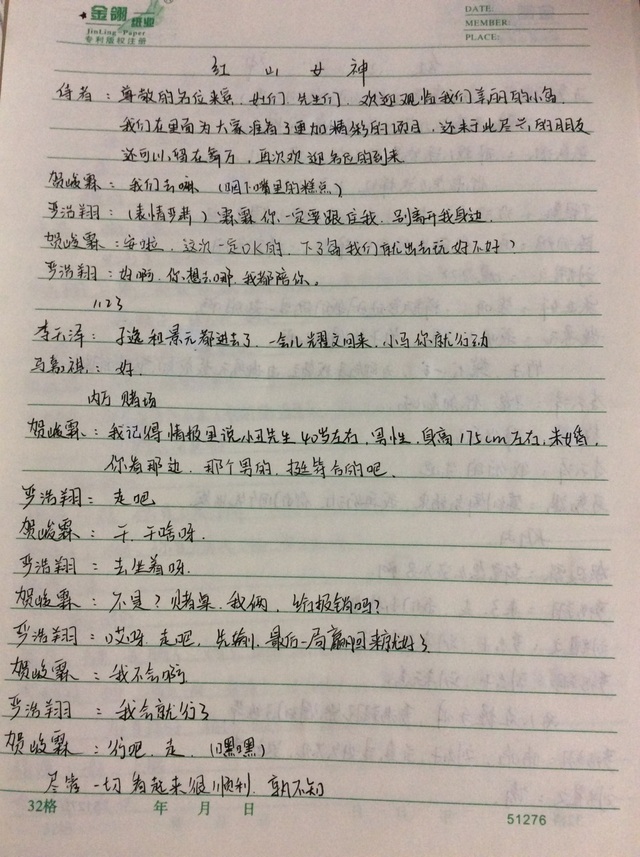 金翎纸业
JinLing-Paper
专利版权注册
DATE:
MEMBER:
PLACE:
红山女神
侍者：尊敬的各位来宾，女士们，先生们，欢迎观临我们美丽的小岛
我们在里面为大家准备了更加精彩的项目，还未于此尽兴的朋友
还可以留在舞厅，再次欢迎各位的到来
贺峻霖：我们去嘛（咽下嘴里的糕点）
严浩翔：（表情严肃）霖霖你一定要跟住我，别离开我身边
贺峻霖：安啦，这次一定OK的，下了岛我们就出去玩好不好？
严浩翔：好啊，你想去哪我都陪你。
1123
李天泽：子逸和景元都进去了，一会儿耀文回来，小马你就行动
马嘉祺：好
内厅 赌场
贺峻霖：我记得情报里说小丑先生40岁左右，男性，身高175cm左右，未婚，
你看那边，那个男的，挺符合的吧
严浩翔：走吧
贺峻霖：干，干啥呀
严浩翔：去坐着呀
贺峻霖：不是？赌桌，我俩，给报销吗？
严浩翔：哎呀，走吧，先输，最后一局赢回来就好了
贺峻霖：我不会啊
严浩翔：我会就行了
贺峻霖：行吧，走（嘿嘿）
尽管一切看起来很顺利，却不知
32格
年 月 日
51276